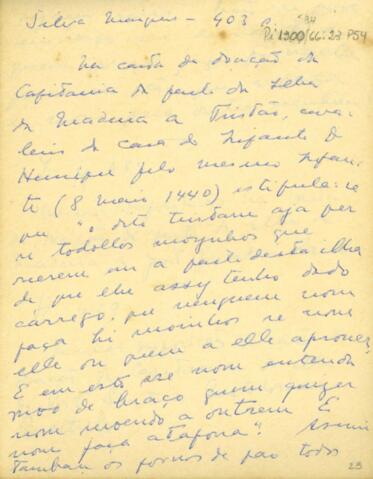 Silva Marques - 403
Pi 1900/66:23 P54
Na carta de doação da
Capitania da parte da Ilha
da Madeira a Tristão, cava-
leiro da casa do Infante D.
Henrique pelo mesmo Infan-
te (8 maio 1440) estipula-se
que "o dito tristam aja per
si todollos moynhos que
ouverem em a parte desta ilha
de que lhe assy tenho dado
carrego, que nenguem nom
faça hi moinhos se nom
elle ou quem a elle aprouver.
E em esto sse nom entenda
moo de braço quem quizer
nom moendo a outrem E
nom faça atafona". Assim
tambem os fornos de pão todos
23